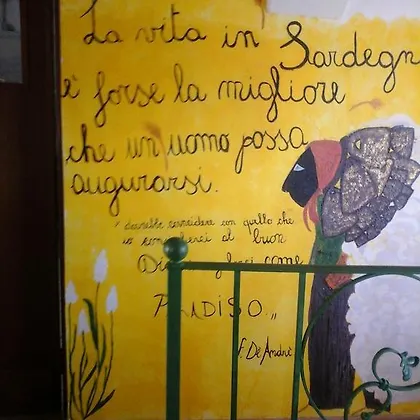 La vita in Sardegn
è forse la migliore
che un uomo possa
augurarsi.
con quello che
io al buon
Di come
F. De Andrè